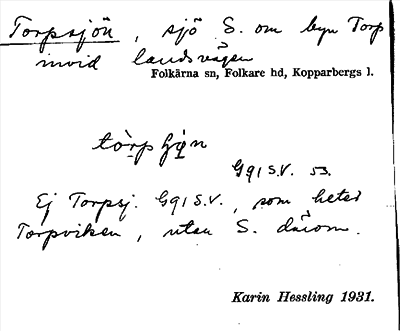 Torpsjön, sjö S. om byn Torp
invid landsvägen
Folkärna sn, Folkare hd, Kopparbergs l.
G91 S.V. 53.
Ej Torpsj. G91 S.V., som heter
Torpviken, utan S. därom.
Karin Hessling 1931.